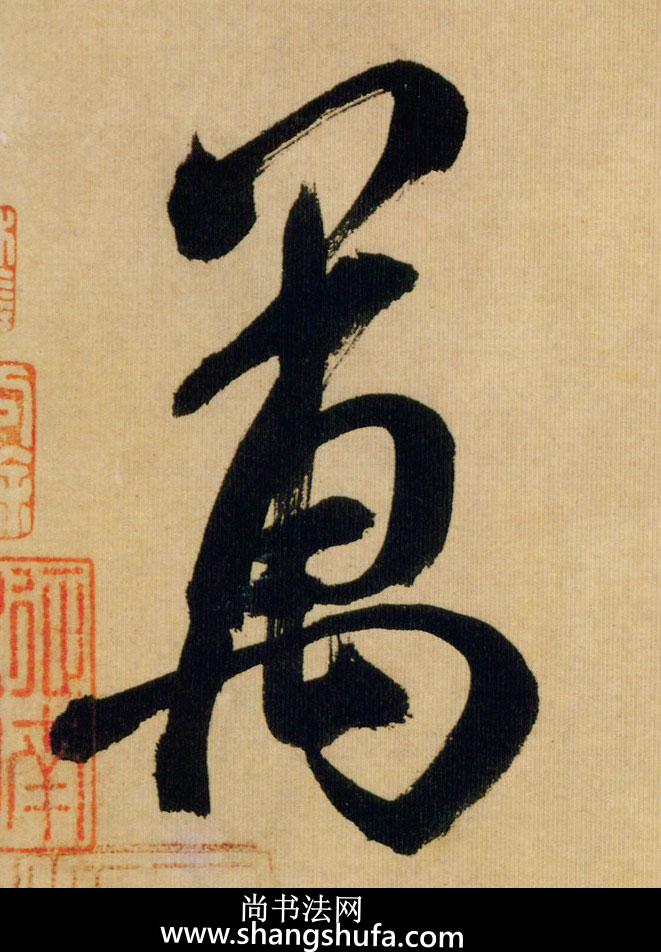 萬
尚书法网
www.shangshufa.com